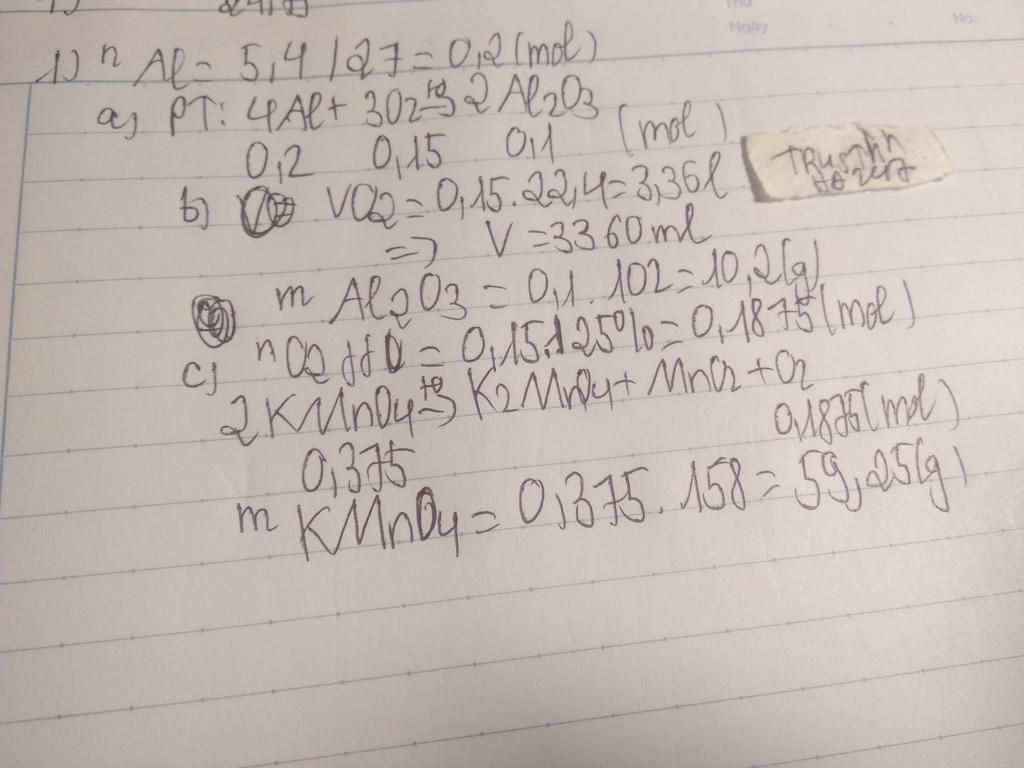 Thứ
Ngày No.
1) n Al = 5,4 / 27 = 0,2 (mol)
a) PT: 4Al + 3O2 to→ 2Al2O3
0,2 0,15 0,1 (mol)
b) VO2 = 0,15.22,4 = 3,36l
=> V = 3360 ml
m Al2O3 = 0,1. 102 = 10,2(g)
c) nO2 = 0,15.125% = 0,1875(mol)
2KMnO4 to→ K2MnO4 + MnO2 + O2
0,1875(mol)
0,375
m KMnO4 = 0,375. 158 = 59,25(g)